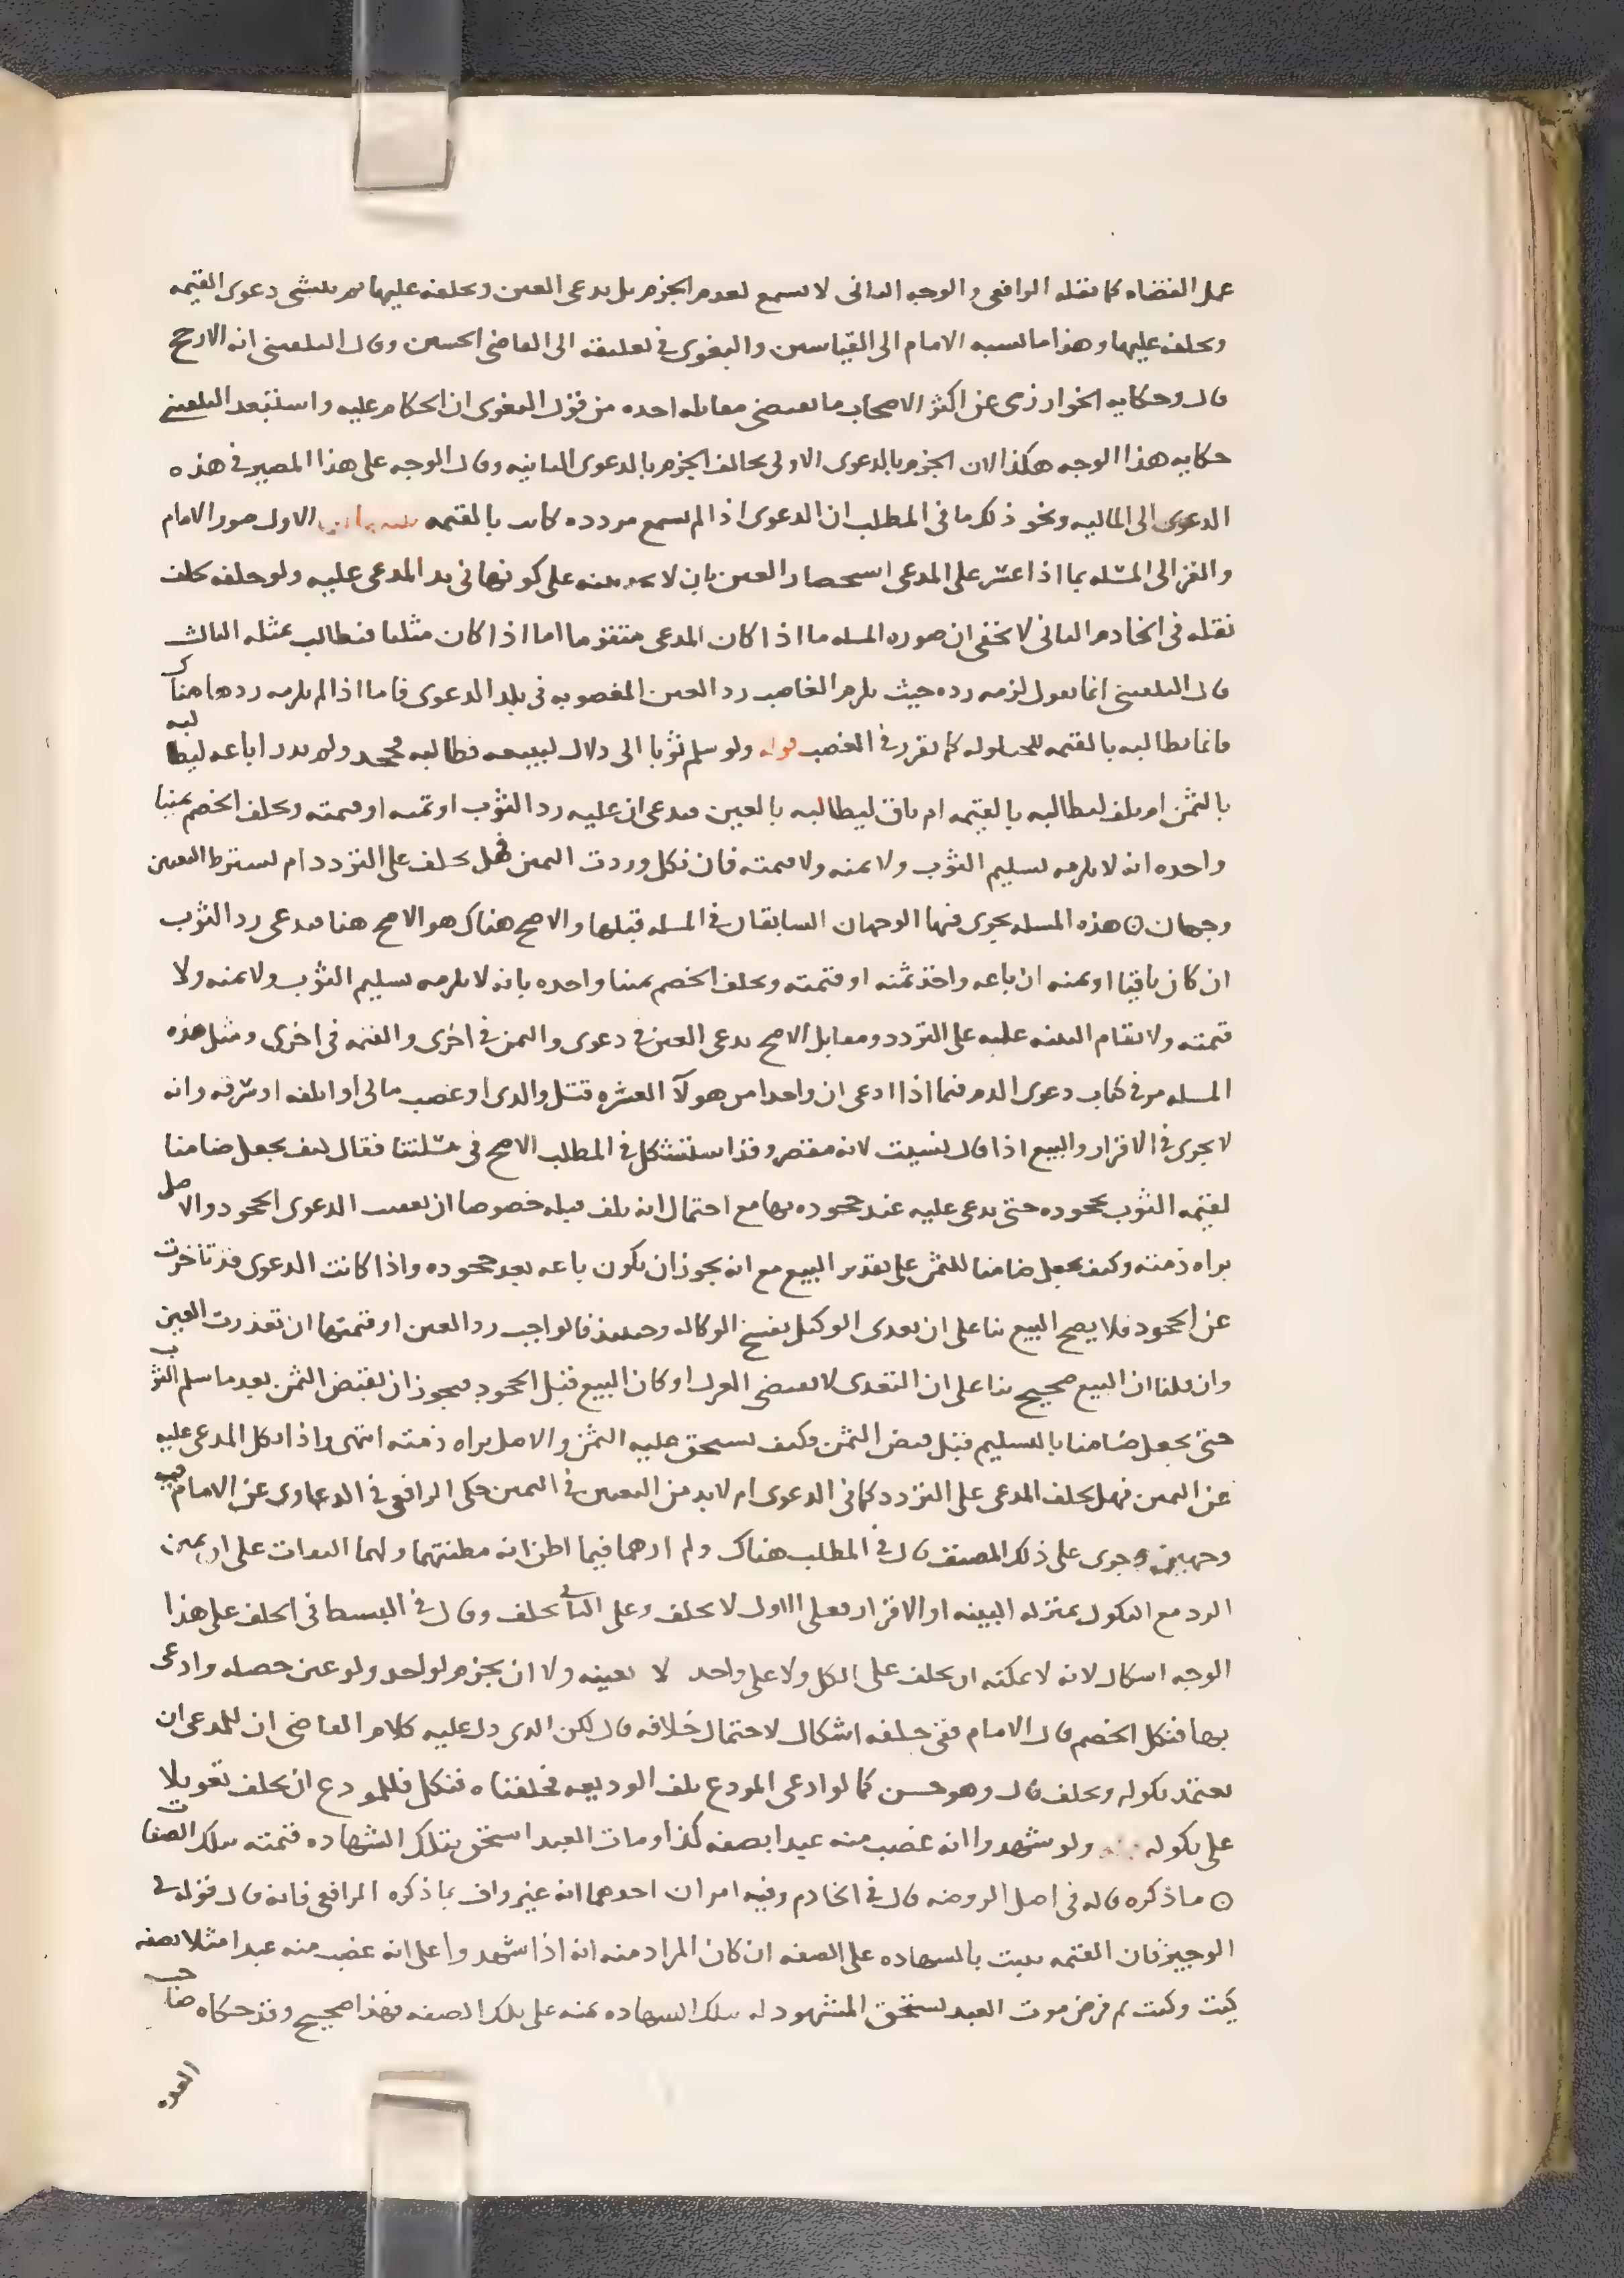 عمل القضاه كما نقله الرافعى والوجه الثانى لا تسمع لعدم الجزم بل يدعى العين ويحلفه عليها ثم ينشى دعوى القيمه
ويحلفه عليها وهذا ما نسبه الامام الى القياسين والبغوى فى تعليقه الى القاضى الحسين وقال البلقينى انه الارجح
قال وحكايه الخوارزمى عن اكثر الاصحاب ما يقتضى مقابله احده من قول البغوى ان الحكام عليه واستبعد البلقينى
حكايه هذا الوجه هكذا لان الجزم بالدعوى الاولى يخالف الجزم بالدعوى الثانيه وقال الوجه على هذا المصير فى هذه
الدعوى الى الماليه ونحو ذلك ما فى المطلب ان الدعوى اذا لم تسمع مردده كانت بالقيمه الاول صور الامام
والغزالى المسئله بما اذا عسر على المدعى استحضار العين بان لا بينه على كونها فى يد المدعى عليه ولو حلفه حلف
نقله فى الخادم الثانى لا يخفى ان صوره المسله ما اذا كان المدعى متقوما اما اذا كان مثليا فيطالب بمثله الثالث
قال البلقينى انما يقول لزمه رده حيث يلزم الغاصب رد العين المغصوبه فى بلد الدعوى فاما اذا لم يلزمه ردها هناك
فانما يطالبه بالقيمه للحيلوله كما تقرر فى الغصب قوله ولو سلم ثوبا الى دلال ليبيعه فطالبه فجحد ولم يدر اباعه ليطالبه
بالثمن ام تلف ليطالبه بالقيمه ام باق ليطالبه بالعين فيدعى ان عليه رد الثوب او ثمنه او قيمته ويحلف الخصم يمينا
واحده انه لا يلزمه تسليم الثوب ولا ثمنه ولا قيمته فان نكل وردت اليمين فهل يحلف على التردد ام يشترط التعيين
وجهان ⊙ هذه المسله يجرى فيها الوجهان السابقان فى المسله قبلها والاصح هناك هو الاصح هنا فيدعى رد الثوب
ان كان باقيا او ثمنه ان باعه واخذ ثمنه او قيمته ويحلف الخصم يمينا واحده بانه لا يلزمه تسليم الثوب ولا ثمنه ولا
قيمته ولا تقام البينه عليه على التردد ومقابل الاصح يدعى العين فى دعوى والثمن فى اخرى والقيمه فى اخرى ومثل هذه
المسله مر فى كتاب دعوى الدم فيما اذا ادعى ان واحدا من هولآ العشره قتل والدى او غصب مالى او اتلفه او سرقه وانه
لا يجرى فى الاقرار والبيع اذا قال نسيت لانه مقصر وقد استشكل فى المطلب الاصح فى مسئلتنا فقال كيف يجعل ضامنا
لقيمه الثوب بجحوده حتى يدعى عليه عند جحوده بها مع احتمال انه تلف قبله خصوصا ان تعقب الدعوى الجحود والاصل
براه ذمته وكيف يجعل ضامنا للثمن على تقدير البيع مع انه يجوز ان يكون باعه بعد جحوده واذا كانت الدعوى قد تاخرت
عن الجحود فلا يصح البيع بنا على ان تعدى الوكيل يفسخ الوكاله وحينئذ فالواجب رد العين او قيمتها ان تعذرت العين
وان قلنا ان البيع صحيح بنا على ان التعدى لا يقتضى العزل او كان البيع قبل الجحود فيجوز ان يقبض الثمن بعد ما سلم الثوب
حتى يجعل ضامنا بالتسليم قبل قبض الثمن وكيف يستحق عليه الثمن والاصل براه ذمته انتهى واذا نكل المدعى عليه
عن اليمين فهل يحلف المدعى على التردد كما فى الدعوى ام لا بد من التعيين فى اليمين حكى الرافعى فى الدعاوى عن الامام فيه
وجهين وجرى على ذلك المصنف قال فى المطلب هناك ولم ارهما فيما اظن انه مظنتهما ولهما التفات على ان يمين
الرد مع النكول بمنزله البينه او الاقرار فعلى الاول لا يحلف وعلى الثانى يحلف وقال فى البسيط فى الحلف على هذا
الوجه اشكال لانه لا يمكنه ان يحلف على الكل ولا على واحد لا بعينه ولا ان يجزم لواحد ولو عين خصله وادعى
بها فنكل الخصم قال الامام ففى حلفه اشكال لاحتمال خلافه قال لكن الذى دل عليه كلام القاضى ان للمدعى ان
يعتمد نكوله ويحلف قال وهو حسن كما لو ادعى المودع تلف الوديعه فحلفناه فنكل فللمودع ان يحلف تعويلا
على نكوله ولو شهدوا انه غصب منه عبدا بصفه كذا ومات العبد استحق بتلك الشهاده قيمته بتلك الصفات
⊙ ما ذكره قاله فى اصل الروضه قال فى الخادم وفيه امران احدهما انه غير واف بما ذكره الرافعى فانه قال قوله فى
الوجيز فان القيمه تثبت بالشهاده على الصفه ان كان المراد منه انه اذا شهدوا على انه غصب منه عبدا مثلا بصفه
كيت وكيت ثم فرض موت العبد يستحق المشهود له بتلك الشهاده ثمنه على تلك الصفه فهذا صحيح وقد حكاه صاحب
العده